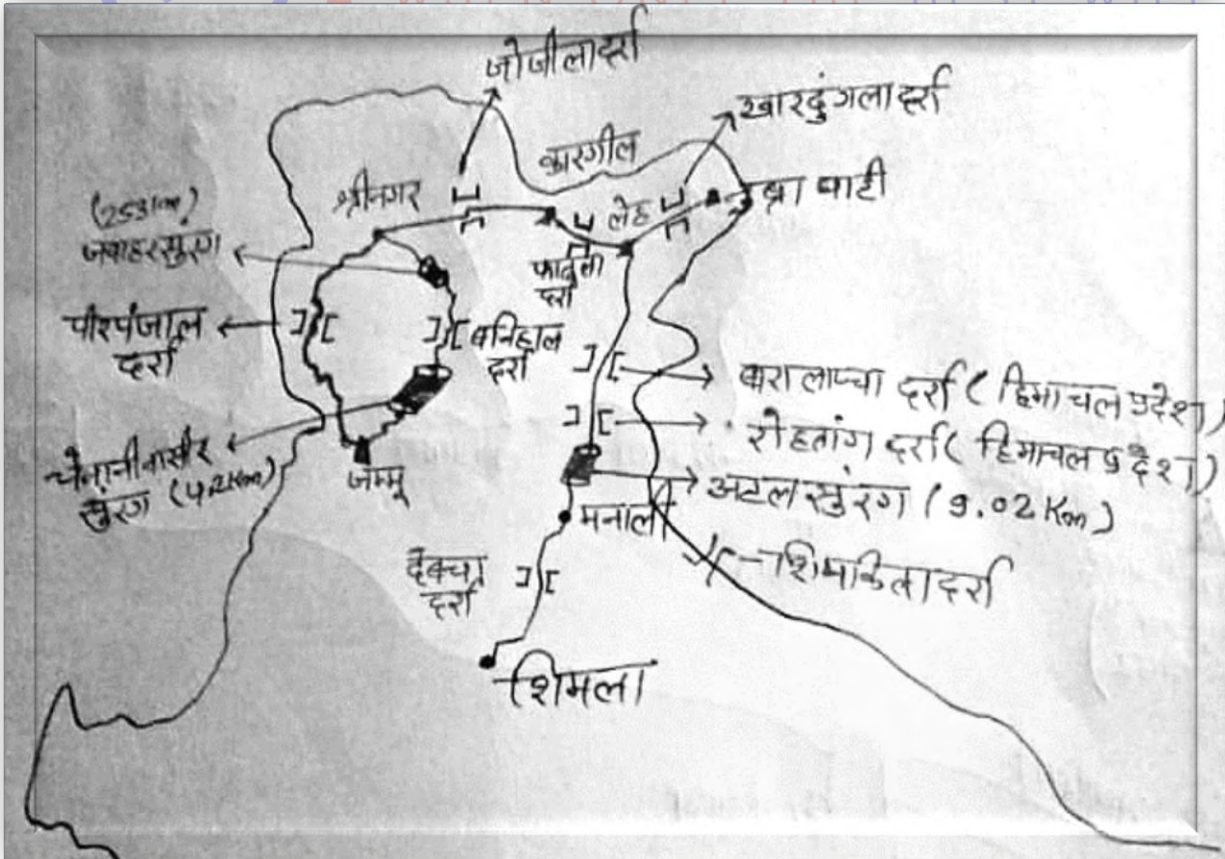 जोजीला दर्रा
खारदुंगला दर्रा
कारगील
श्रीनगर
लेह
ब्रा घाटी
जवाहर सुरंग
फातुला
दर्रा
पीरपंजाल
दर्रा
बनिहाल
दर्रा
बारालाप्चा दर्रा ( हिमाचल प्रदेश )
रोहतांग दर्रा ( हिमाचल प्रदेश )
चेनानी नासीर
सुंरग
जम्मू
अटल सुंरग ( 9.02 Km )
मनाली
देबचा
दर्रा
शिपकिला दर्रा
शिमला